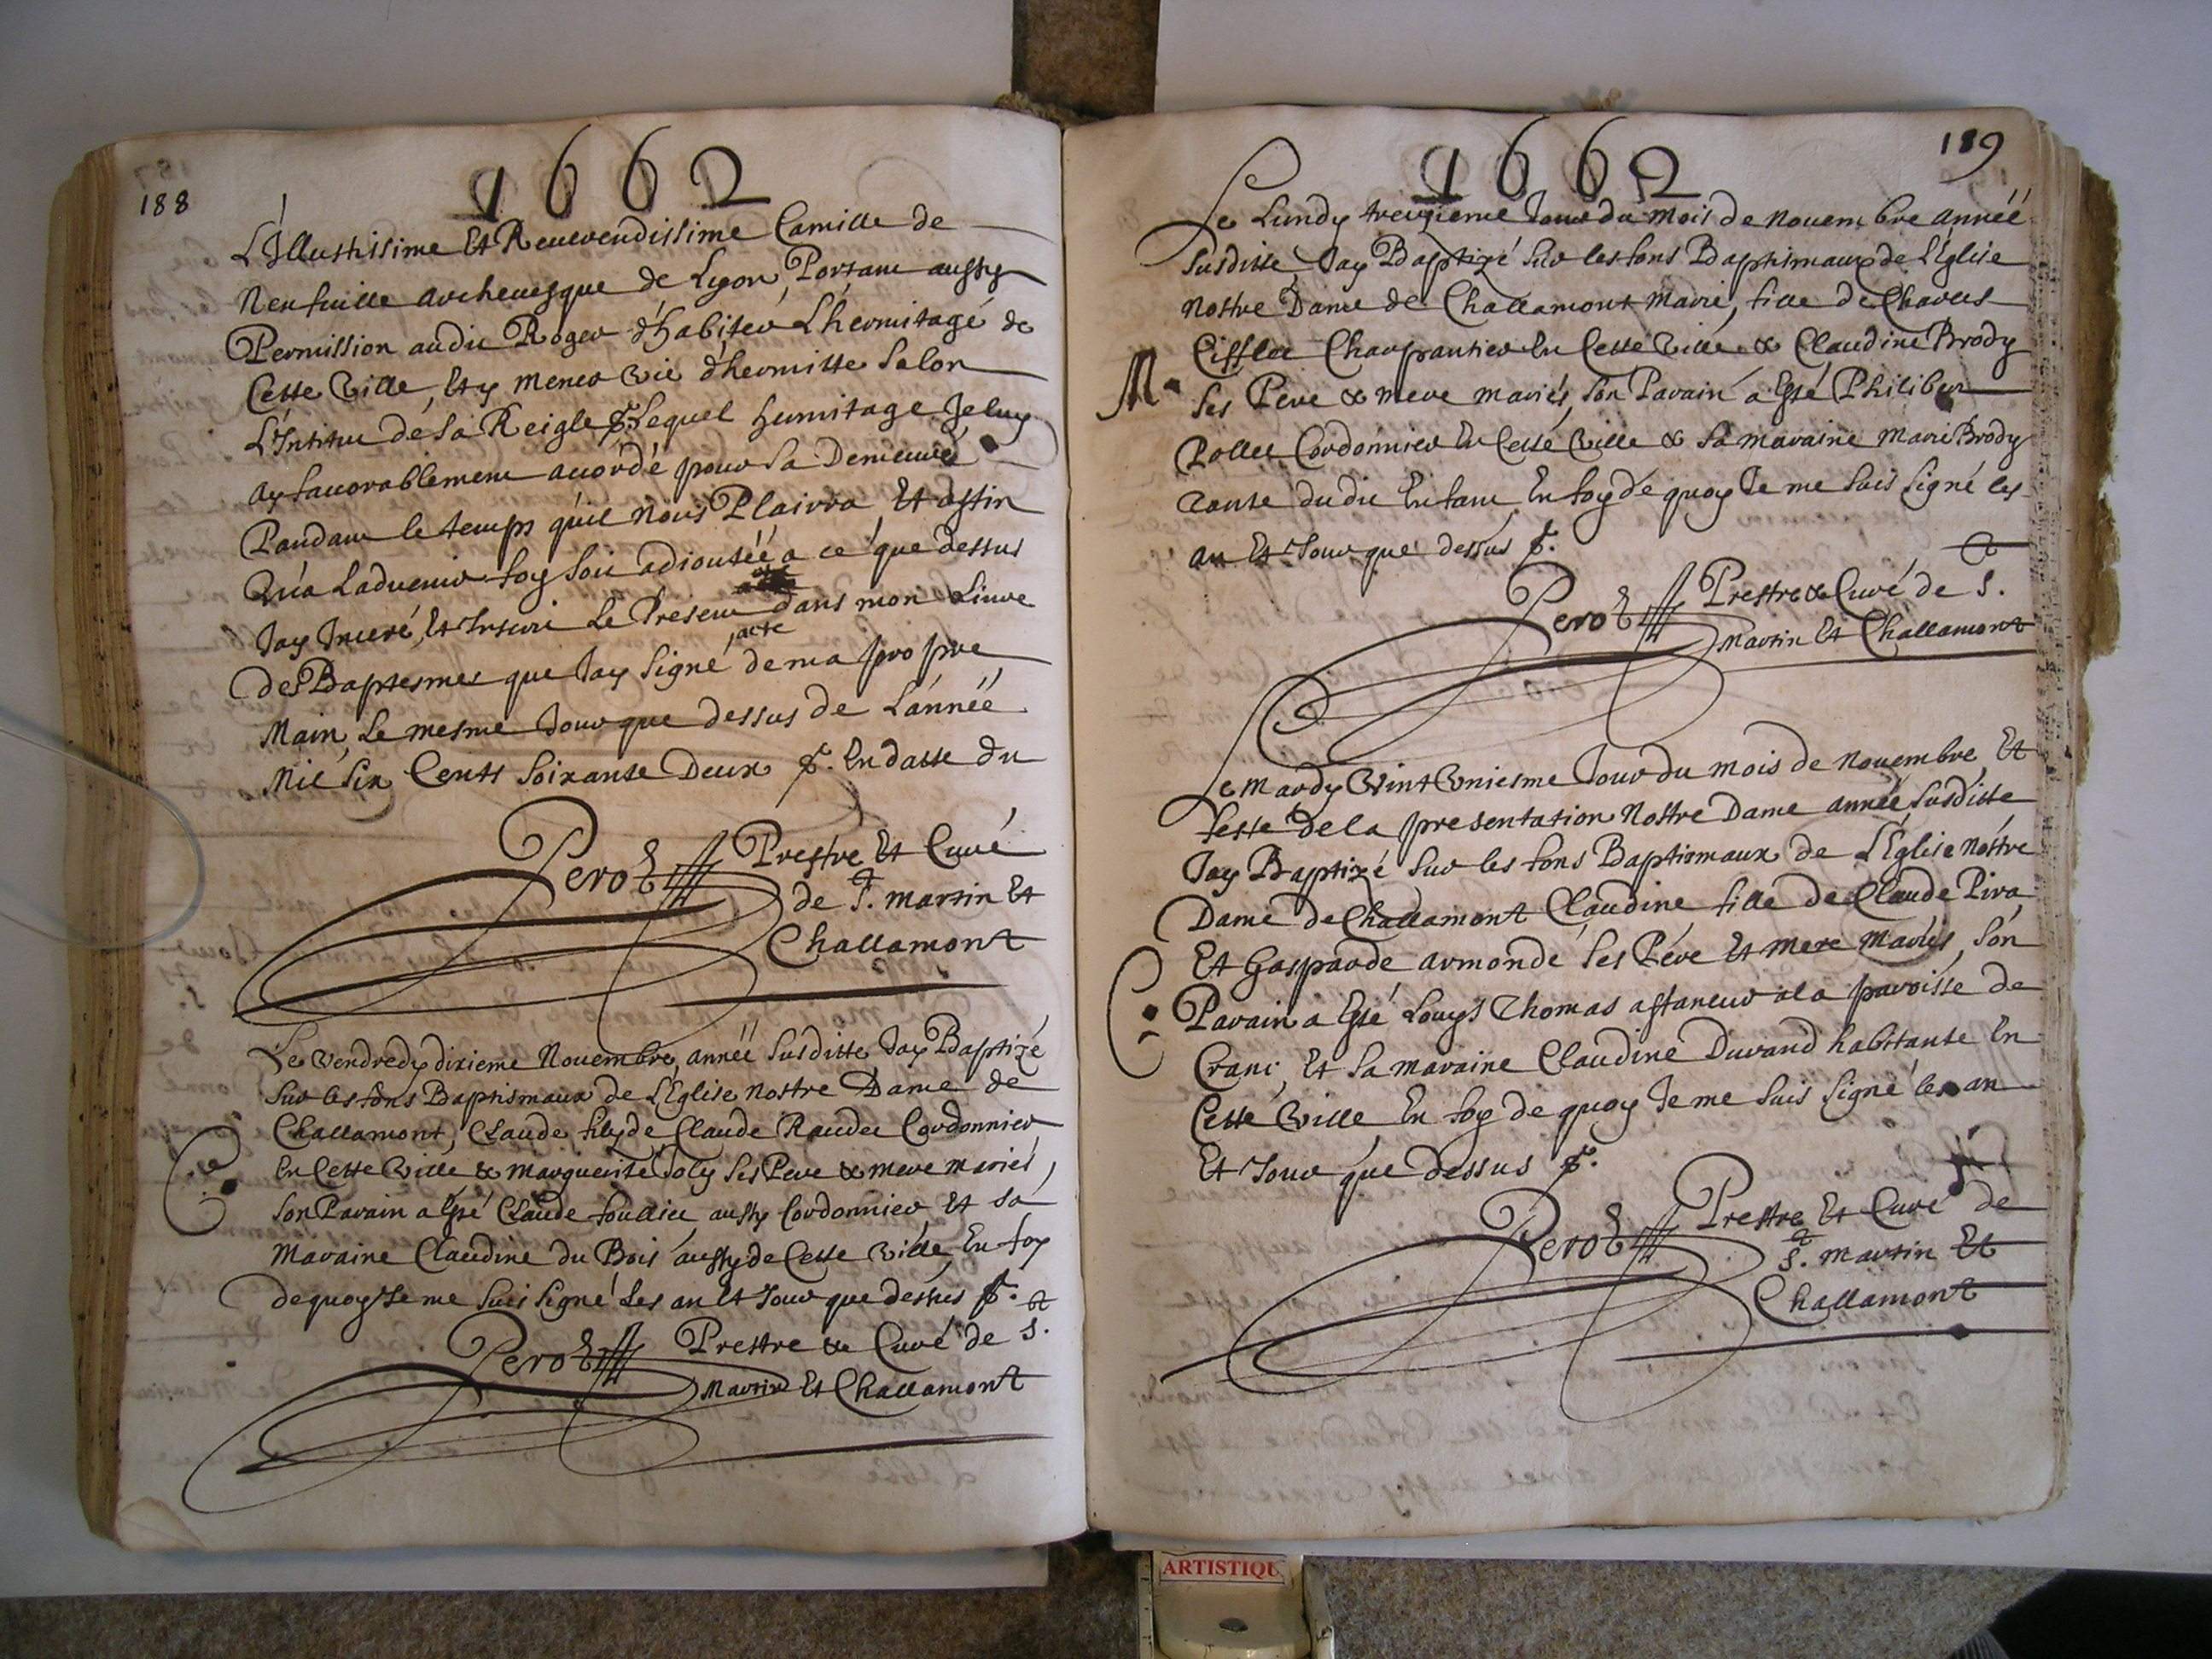 188
1662
L'Illustissime Et Reuerendissime Camille de
Neufuille archeuesque de Lyon, Portant aussy
Permission audit Roger d'habiter L'hermitage de
Cette Ville, Et y mener Vie d'hermitte Selon
L'Intitut de Sa Reigle Lequel hermitage Je luy
ay fauorablement acordé pour Sa Demeure
Pandant le temps qu'il Nous Plairra Et affin
Qu'a Laduenir foy Soit adioutéé a ce que dessus
Jay Inceré, Et Inscrit Le Present dans mon Liure
acte
des Baptesmes que Jay Signé de ma propre
Main, Le mesme Jour que dessus de L'année
Mil Six Cents Soixante Deux. En datte du
Perot Prestre Et Curé
de St. Martin Et
Challamont
Le Vendredy dixieme Nouembre, année Susditte Jay Baptizé
Sur les fons Baptismaux de L'Eglise Nostre Dame de
Challamont, Claude fils de Claude Raudet Cordonnier
En Cette Ville & Marguerite Joly Ses Pere & mere mariés,
Son Parain a Esté Claude foulliet aussy Cordonnier Et Sa
Maraine Claudine du Bois aussy de Cette Ville, En foy
de quoy Je me Suis Signé Les an Et Jour que dessus
Perot Prestre & Curé de St.
Martin Et Challamont
189
1662
Le Lundy treizieme Jour du Mois de Nouembre année
Susditte Jay Baptizé Sur les fons Baptismaux de L'Eglise
Nostre Dame de Challamont Marie, fille de Charles
Cifflet Charpantier En Cette Ville & Claudine Brody
M
Ses Pere & mere mariés, Son Parain a Esté Philibert
Pollet Cordonnier En Cette Ville & Sa maraine Marie Brody
Tante dudit Enfant En foy de quoy Je me Suis Signé les
an Et Jour que dessus
Perot Prestre & Curé de St.
Martin Et Challamont
Le Mardy Vint Vniesme Jour du Mois de Nouembre Et
feste de la presentation Nostre Dame année Susditte
Jay Baptizé Sur les fons Baptismaux de L'Eglise Nostre
Dame de Challamont Claudine fille de Claude Pira
Et Gasparde armonde Ses Pere Et Mere Mariés, Son
C
Parain a Esté Louys Thomas affaneur a la paroisse de
Crani, Et Sa Maraine Claudine Durand habittante En
Cette Ville En foy de quoy Je me Suis Signé les an
Et Jour que dessus
Perot Prestre Et Curé de
St. Martin Et
Challamont
ARTISTIQU